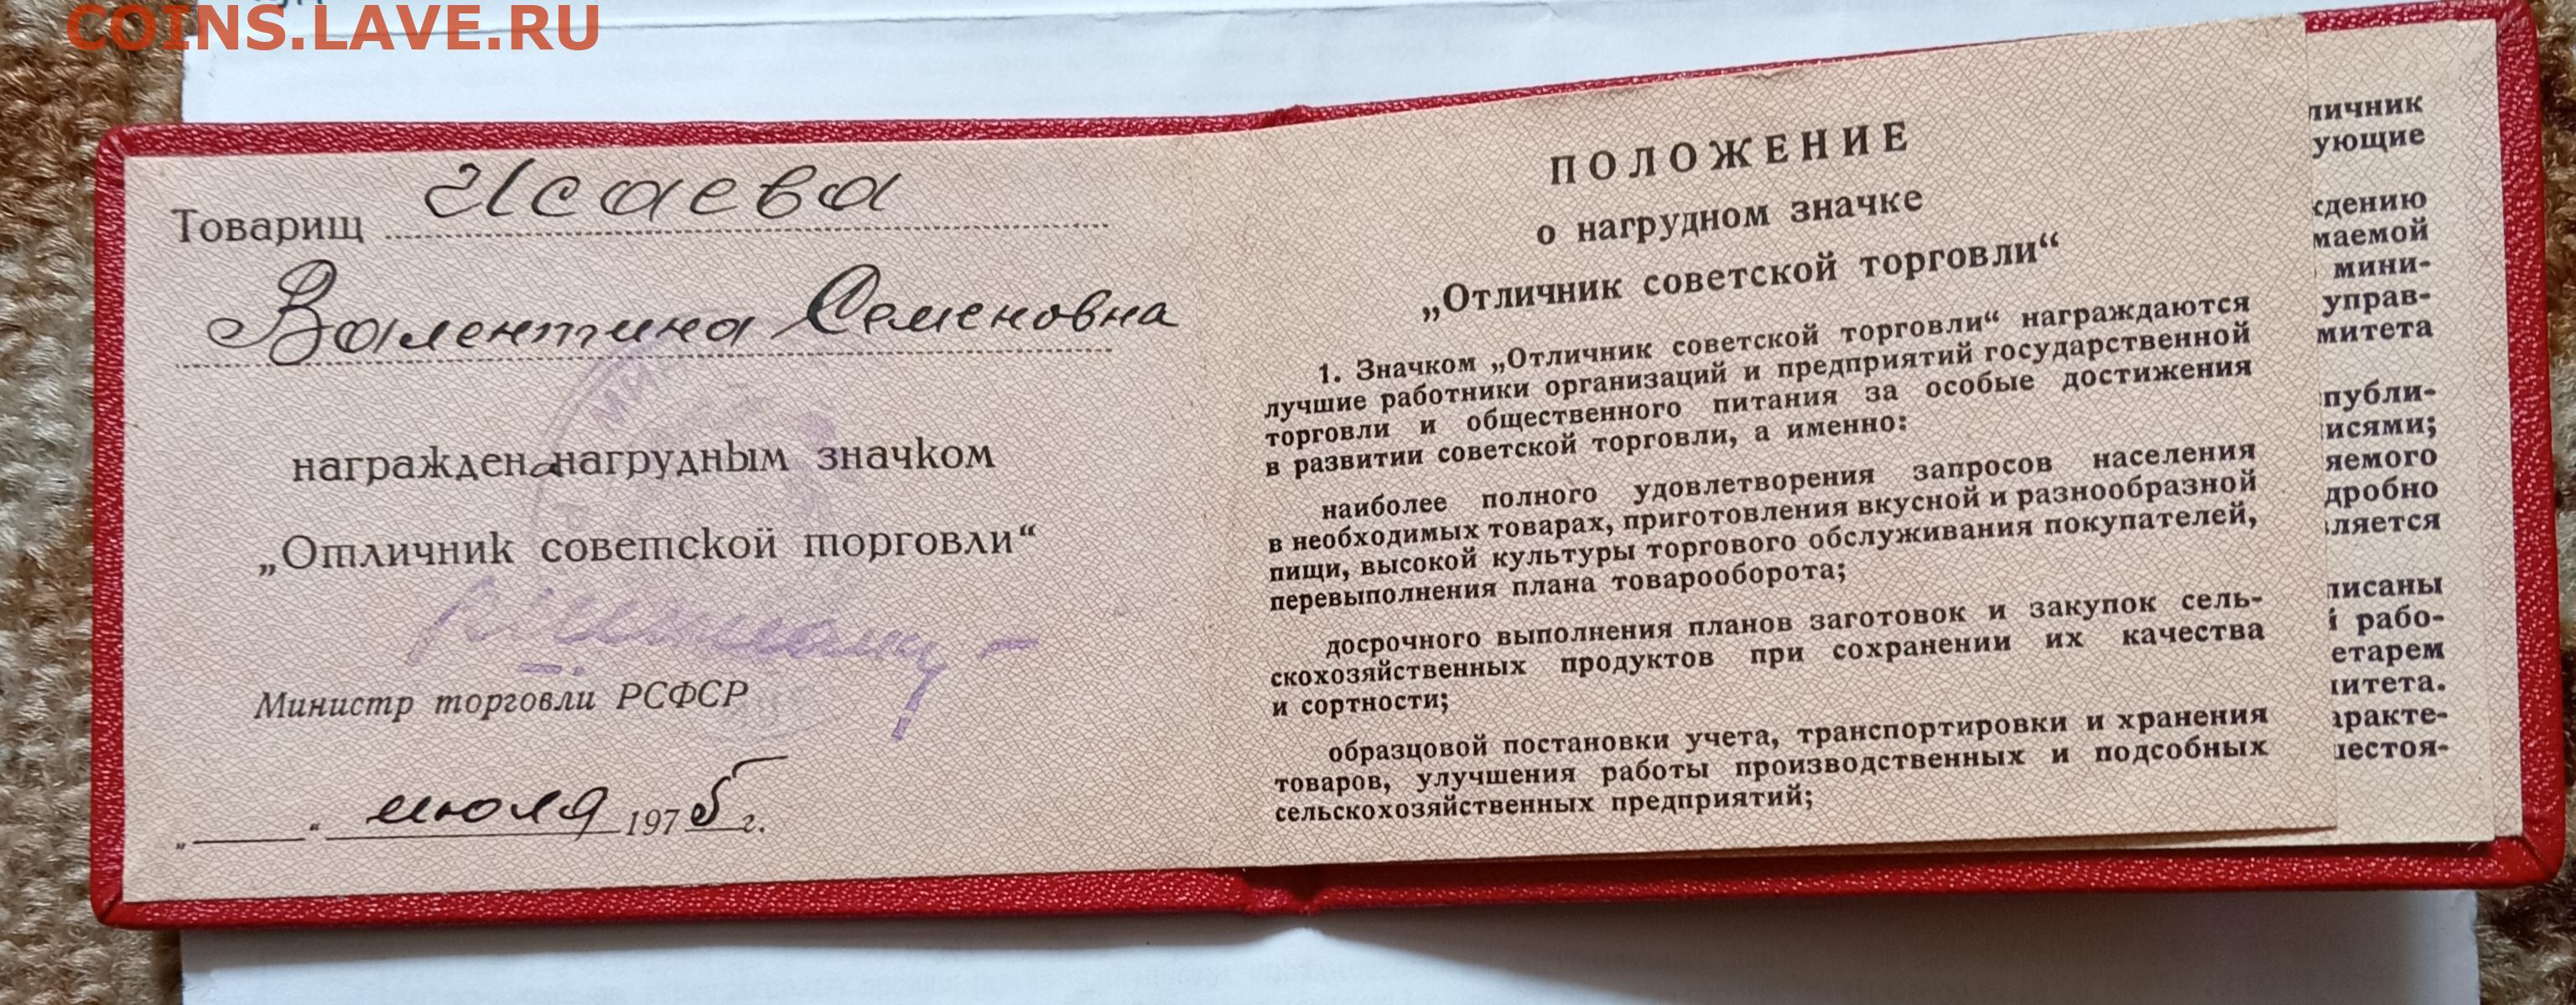 COINS.LAVE.RU
Товарищ Исаева
Валентина Семеновна
награждена нагрудным значком
„Отличник советской торговли“
Министр торговли РСФСР
„ “ июля 1975 г.
ПОЛОЖЕНИЕ
о нагрудном значке
„Отличник советской торговли“
1. Значком „Отличник советской торговли“ награждаются
лучшие работники организаций и предприятий государственной
торговли и общественного питания за особые достижения
в развитии советской торговли, а именно:
наиболее полного удовлетворения запросов населения
в необходимых товарах, приготовления вкусной и разнообразной
пищи, высокой культуры торгового обслуживания покупателей,
перевыполнения плана товарооборота;
досрочного выполнения планов заготовок и закупок сель-
скохозяйственных продуктов при сохранении их качества
и сортности;
образцовой постановки учета, транспортировки и хранения
товаров, улучшения работы производственных и подсобных
сельскохозяйственных предприятий;
личник
ующие
ждению
маемой
мини-
управ-
митета
публи-
исями;
яемого
дробно
ляется
писаны
рабо-
етарем
итета.
аракте-
шестоя-